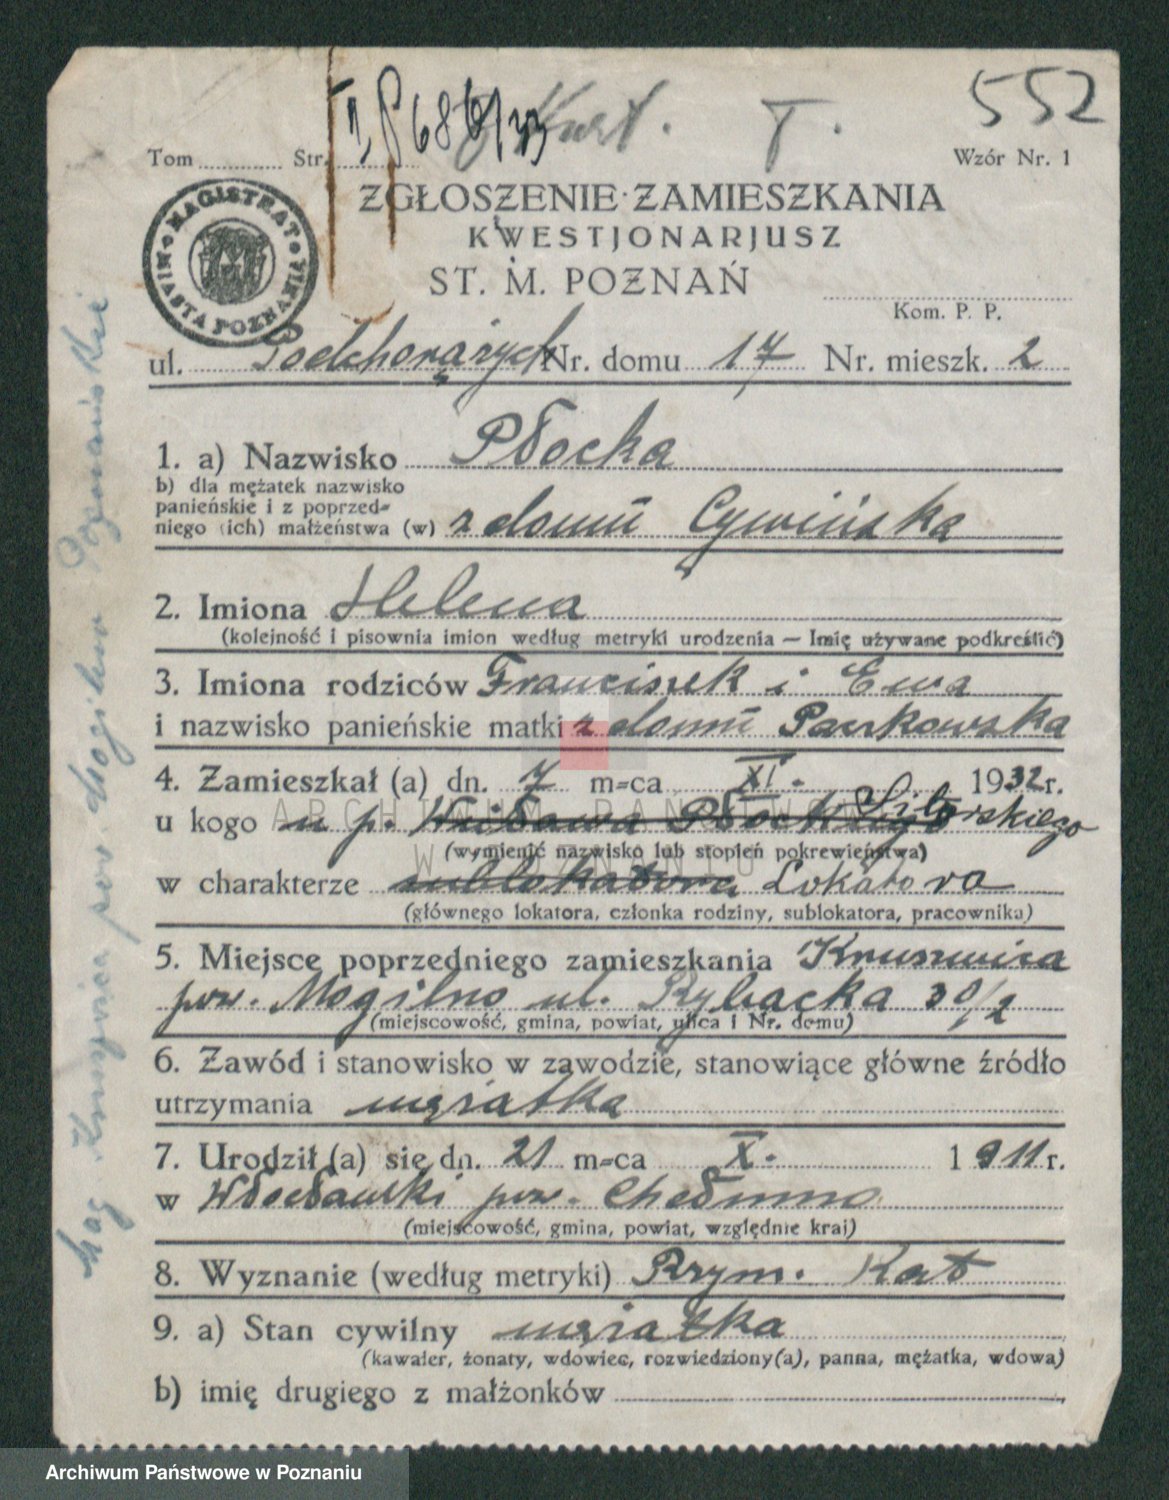 552
Tom Str. Wzór Nr. 1
ZGŁOSZENIE ZAMIESZKANIA
KWESTJONARJUSZ
ST. M. POZNAŃ
Kom. P. P.
MAGISTRAT MIASTA POZNANIA
ul. Podchorążych Nr. domu 17 Nr. mieszk. 2
1. a) Nazwisko Płocka
b) dla mężatek nazwisko
panieńskie i z poprzed-
niego (ich) małżeństwa (w) z domu Cywińska
2. Imiona Helena
(kolejność i pisownia imion według metryki urodzenia — Imię używane podkreślić)
3. Imiona rodziców Franciszek i Ewa
i nazwisko panieńskie matki z domu Parkowska
4. Zamieszkał (a) dn. 7 m-ca XI. 1932 r.
u kogo u p.
(wymienić nazwisko lub stopień pokrewieństwa)
w charakterze sublokatora Lokatora
(głównego lokatora, członka rodziny, sublokatora, pracownika)
5. Miejsce poprzedniego zamieszkania Kruszwica
pow. Mogilno ul. Rybacka 30/2
(miejscowość, gmina, powiat, ulica i Nr. domu)
6. Zawód i stanowisko w zawodzie, stanowiące główne źródło
utrzymania mężatka
7. Urodził (a) się dn. 21 m-ca X. 1911 r.
w pow. Chełmno
(miejscowość, gmina, powiat, względnie kraj)
8. Wyznanie (według metryki) Rzym. Kat
9. a) Stan cywilny mężatka
(kawaler, żonaty, wdowiec, rozwiedziony(a), panna, mężatka, wdowa)
b) imię drugiego z małżonków
Mag Kruszwica pow Mogilno Poznańskie
ARCHIWUM PAŃSTWOWE
W POZNANIU
Archiwum Państwowe w Poznaniu